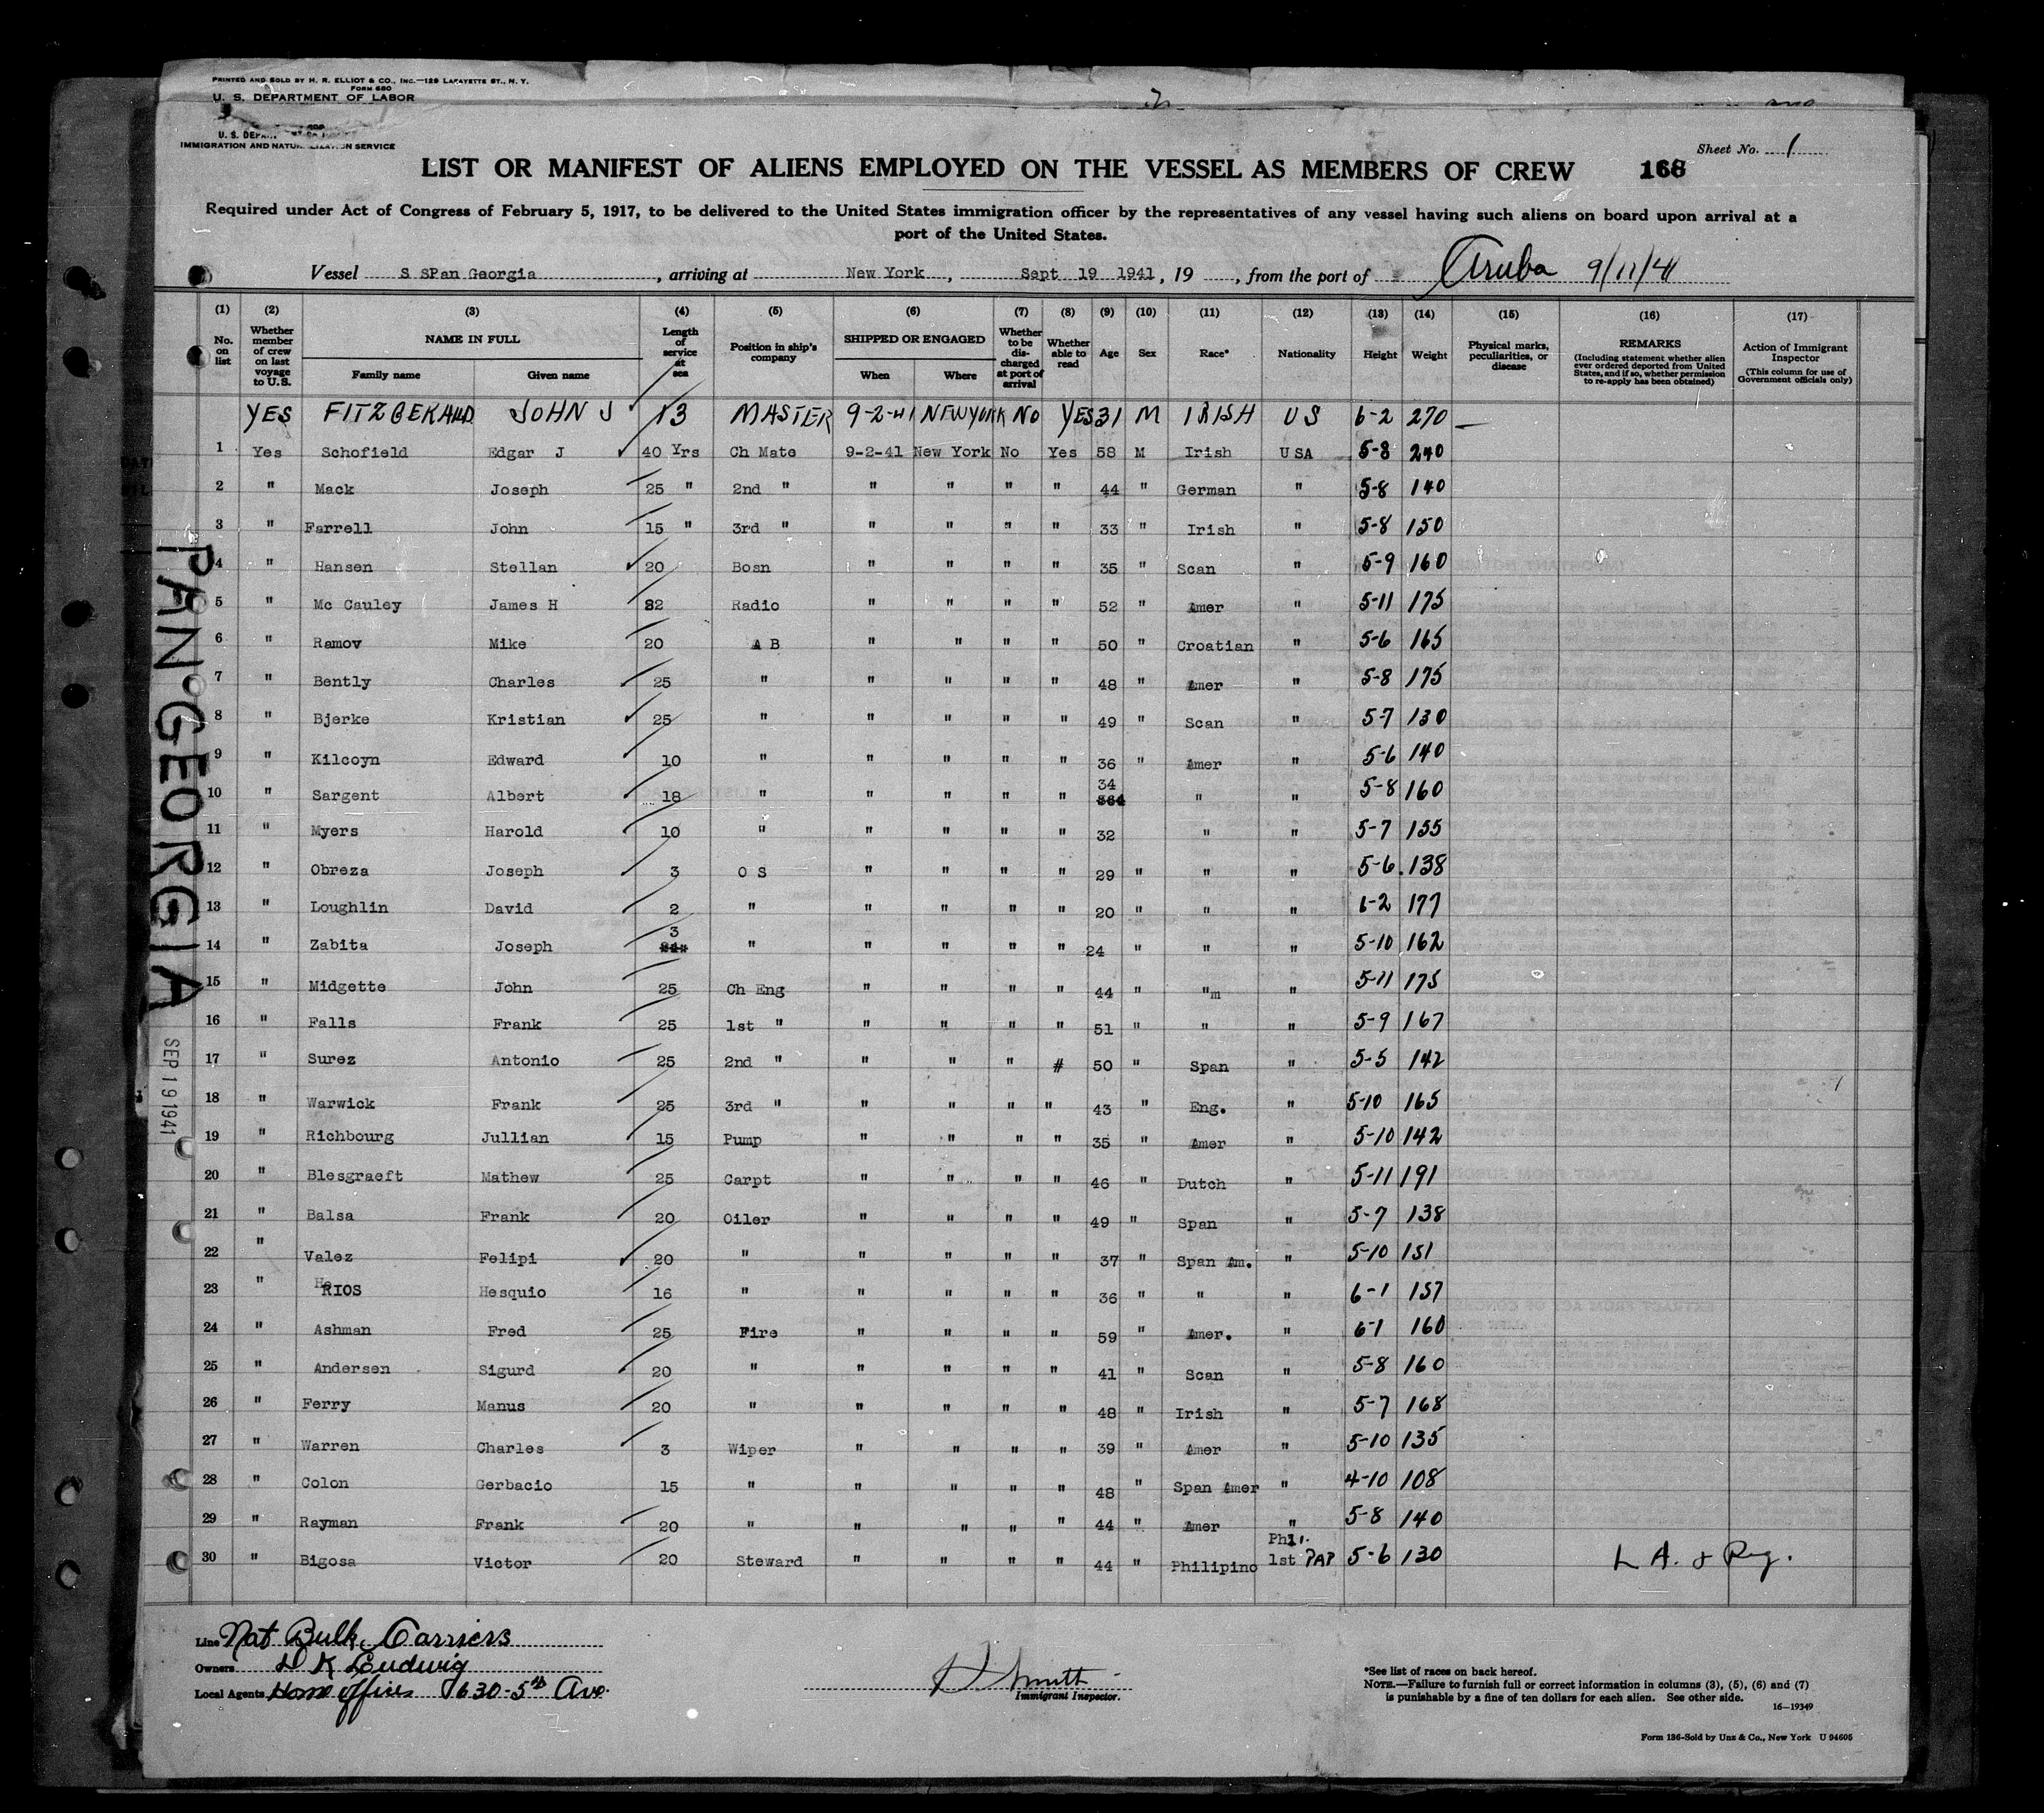 PRINTED AND SOLD BY H. R. ELLIOT & CO., INC.—129 LAFAYETTE ST., N. Y.
FORM 680
U. S. DEPARTMENT OF LABOR
IMMIGRATION AND NATURALIZATION SERVICE
Sheet No. 1
LIST OR MANIFEST OF ALIENS EMPLOYED ON THE VESSEL AS MEMBERS OF CREW 168
Required under Act of Congress of February 5, 1917, to be delivered to the United States immigration officer by the representatives of any vessel having such aliens on board upon arrival at a
port of the United States.
Vessel S SPan Georgia, arriving at New York, Sept 19 1941, 19 , from the port of Aruba 9/11/41
(1) No. on list (2) Whether member of crew on last voyage to U.S. (3) NAME IN FULL Family name Given name (4) Length of service at sea (5) Position in ship's company (6) SHIPPED OR ENGAGED When Where (7) Whether to be discharged at port of arrival (8) Whether able to read (9) Age (10) Sex (11) Race* (12) Nationality (13) Height (14) Weight (15) Physical marks, peculiarities, or disease (16) REMARKS (Including statement whether alien ever ordered deported from United States, and if so, whether permission to re-apply has been obtained) (17) Action of Immigrant Inspector (This column for use of Government officials only)
YES FITZGERALD JOHN J 13 MASTER 9-2-41 NEW YORK NO YES 31 M IRISH US 6-2 270 —
1 Yes Schofield Edgar J 40 Yrs Ch Mate 9-2-41 New York No Yes 58 M Irish USA 5-8 240
2 " Mack Joseph 25 " 2nd " " " " " 44 " German " 5-8 140
3 " Farrell John 15 " 3rd " " " " " 33 " Irish " 5-8 150
4 " Hansen Stellan 20 Bosn " " " " 35 " Scan " 5-9 160
5 " Mc Cauley James H 32 Radio " " " " 52 " Amer " 5-11 175
6 " Ramov Mike 20 A B " " " " 50 " Croatian " 5-6 165
7 " Bently Charles 25 " " " " " 48 " Amer " 5-8 175
8 " Bjerke Kristian 25 " " " " " 49 " Scan " 5-7 130
9 " Kilcoyn Edward 10 " " " " " 36 " Amer " 5-6 140
10 " Sargent Albert 18 " " " " " 34 " " 5-8 160
11 " Myers Harold 10 " " " " " 32 " " 5-7 155
12 " Obreza Joseph 3 O S " " " " 29 " " " 5-6 138
13 " Loughlin David 2 " " " " " 20 " " " 6-2 177
14 " Zabita Joseph 3 " " " " " 24 " " " 5-10 162
15 " Midgette John 25 Ch Eng " " " " 44 " "m " 5-11 175
16 " Falls Frank 25 1st " " " " " 51 " " " 5-9 167
17 " Surez Antonio 25 2nd " " " " # 50 " Span " 5-5 142
18 " Warwick Frank 25 3rd " " " " " 43 " Eng. " 5-10 165
19 " Richbourg Jullian 15 Pump " " " " 35 " Amer " 5-10 142
20 " Blesgraeft Mathew 25 Carpt " " " " 46 " Dutch " 5-11 191
21 " Balsa Frank 20 Oiler " " " " 49 " Span " 5-7 138
22 " Valez Felipi 20 " " " " " 37 " Span Am. " 5-10 151
23 " RIOS Hesquio 16 " " " " " 36 " " " 6-1 157
24 " Ashman Fred 25 Fire " " " " 59 " Amer. " 6-1 160
25 " Andersen Sigurd 20 " " " " " 41 " Scan " 5-8 160
26 " Ferry Manus 20 " " " " " 48 " Irish " 5-7 168
27 " Warren Charles 3 Wiper " " " " 39 " Amer " 5-10 135
28 " Colon Gerbacio 15 " " " " " 48 " Span Amer " 4-10 108
29 " Rayman Frank 20 " " " " " 44 " Amer " 5-8 140
30 " Bigosa Victor 20 Steward " " " " 44 " Philipino Phi. 1st PAP 5-6 130 L A. & Reg.
PAN GEORGIA
SEP 19 1941
Line Nat Bulk Carriers
Owners D K Ludwig
Local Agents Home offices 630-5th Ave.
Smith
Immigrant Inspector.
*See list of races on back hereof.
NOTE.—Failure to furnish full or correct information in columns (3), (5), (6) and (7)
is punishable by a fine of ten dollars for each alien. See other side.
16—19349
Form 136-Sold by Unz & Co., New York U 94605